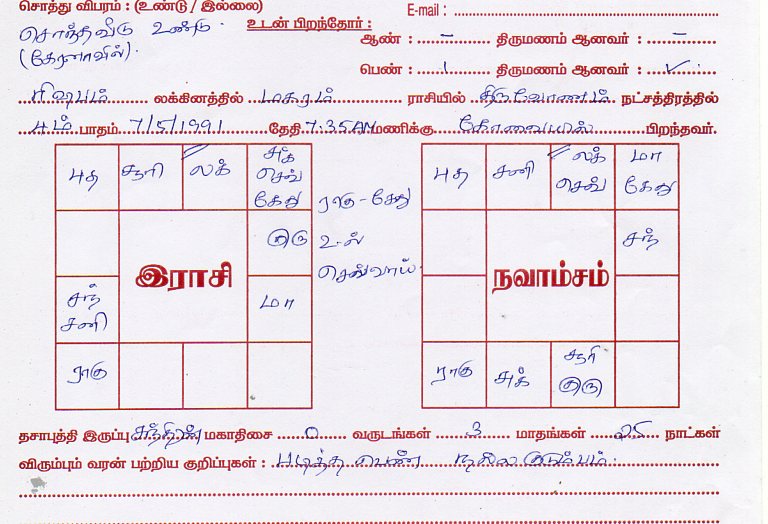 சொத்து விபரம் : (உண்டு / இல்லை) E-mail :
சொந்தவீடு உண்டு. உடன் பிறந்தோர் :
(கேரளாவில்) ஆண் : – திருமணம் ஆனவர் : –
பெண் : 1 திருமணம் ஆனவர் : ✓
ரிஷபம் லக்கினத்தில் மகரம் ராசியில் திருவோணம் நட்சத்திரத்தில்
4ம் பாதம் 7/5/1991 தேதி 7:35AM மணிக்கு கோவையில் பிறந்தவர்.
புத சூரி லக் சுக் செவ் கேது
குரு
இராசி
சந் சனி மா
ராகு
ராகு-கேது
உள்
செவ்வாய்.
புத சனி லக் செவ் மா கேது
சந்
நவாம்சம்
ராகு சுக் சூரி குரு
தசாபுத்தி இருப்பு சந்திரன் மகாதிசை 0 வருடங்கள் 3 மாதங்கள் 25 நாட்கள்
விரும்பும் வரன் பற்றிய குறிப்புகள் : படித்த பெண் நல்ல குடும்பம்.